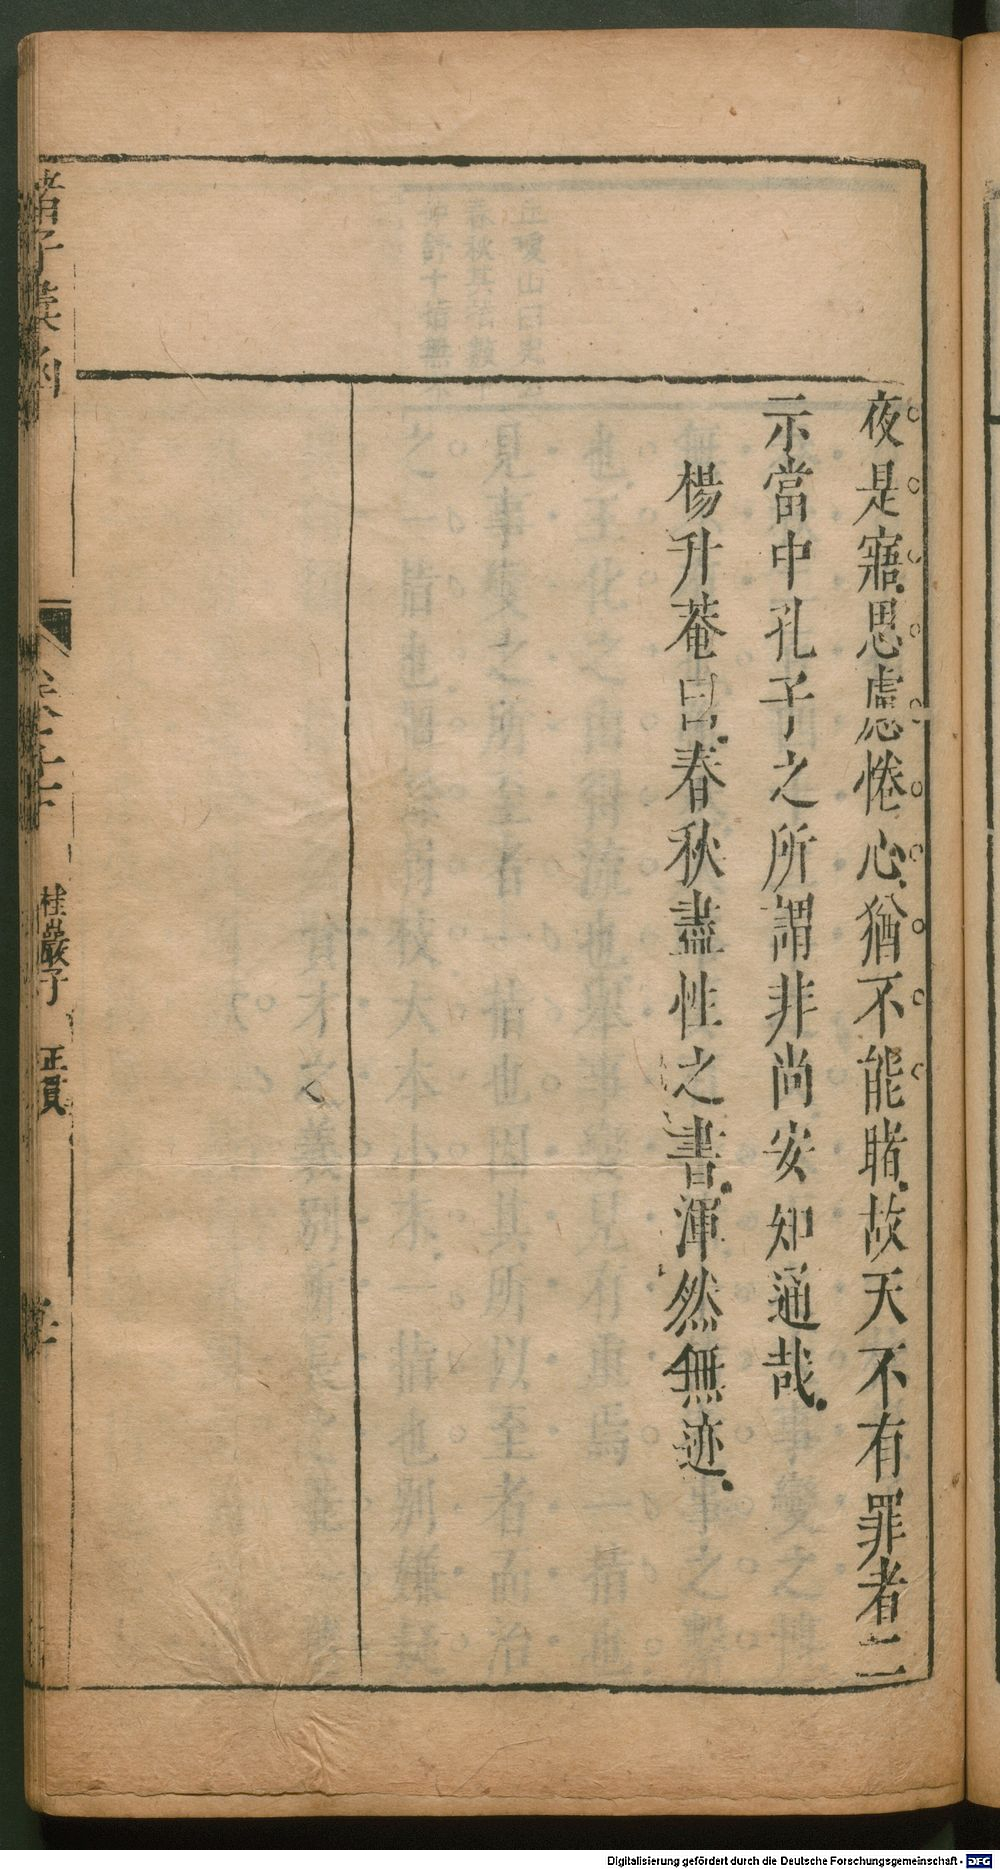 夜是寤思慮惓心猶不能睹故天不有罪者二
示當中孔子之所謂非尚安知通哉
楊升菴曰春秋盡性之書渾然無迹
諸子彙函
桂巖子 正貫
Digitalisierung gefördert durch die Deutsche Forschungsgemeinschaft - DFG